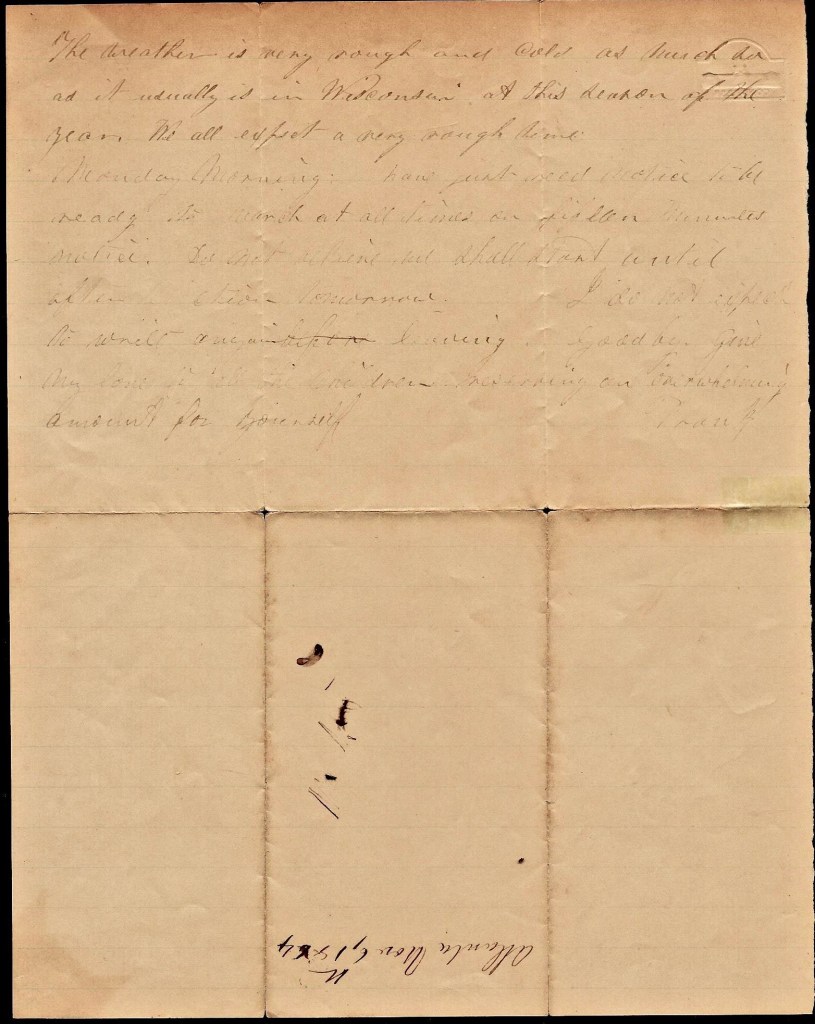 The weather is very rough and Cold as much so
as it usually is in Wisconsin at this season of the
year. We all expect a very rough time
Monday Morning. have just recd notice to be
ready to march at all times on fifteen minutes
notice. Do not believe we shall start until
after Election tomorrow. I do not expect
to write again before leaving. Goodbye Give
my love to all the children reserving an overwhelming
amount for yourself Frank
Atlanta Nov 6th 1864